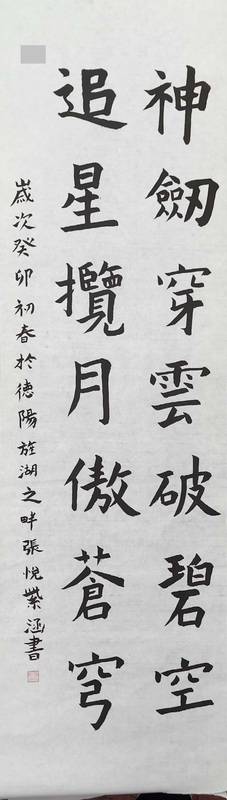 神劔穿雲破碧空
追星攬月傲蒼穹
歲次癸卯初春於德陽旌湖之畔張悅紫涵書